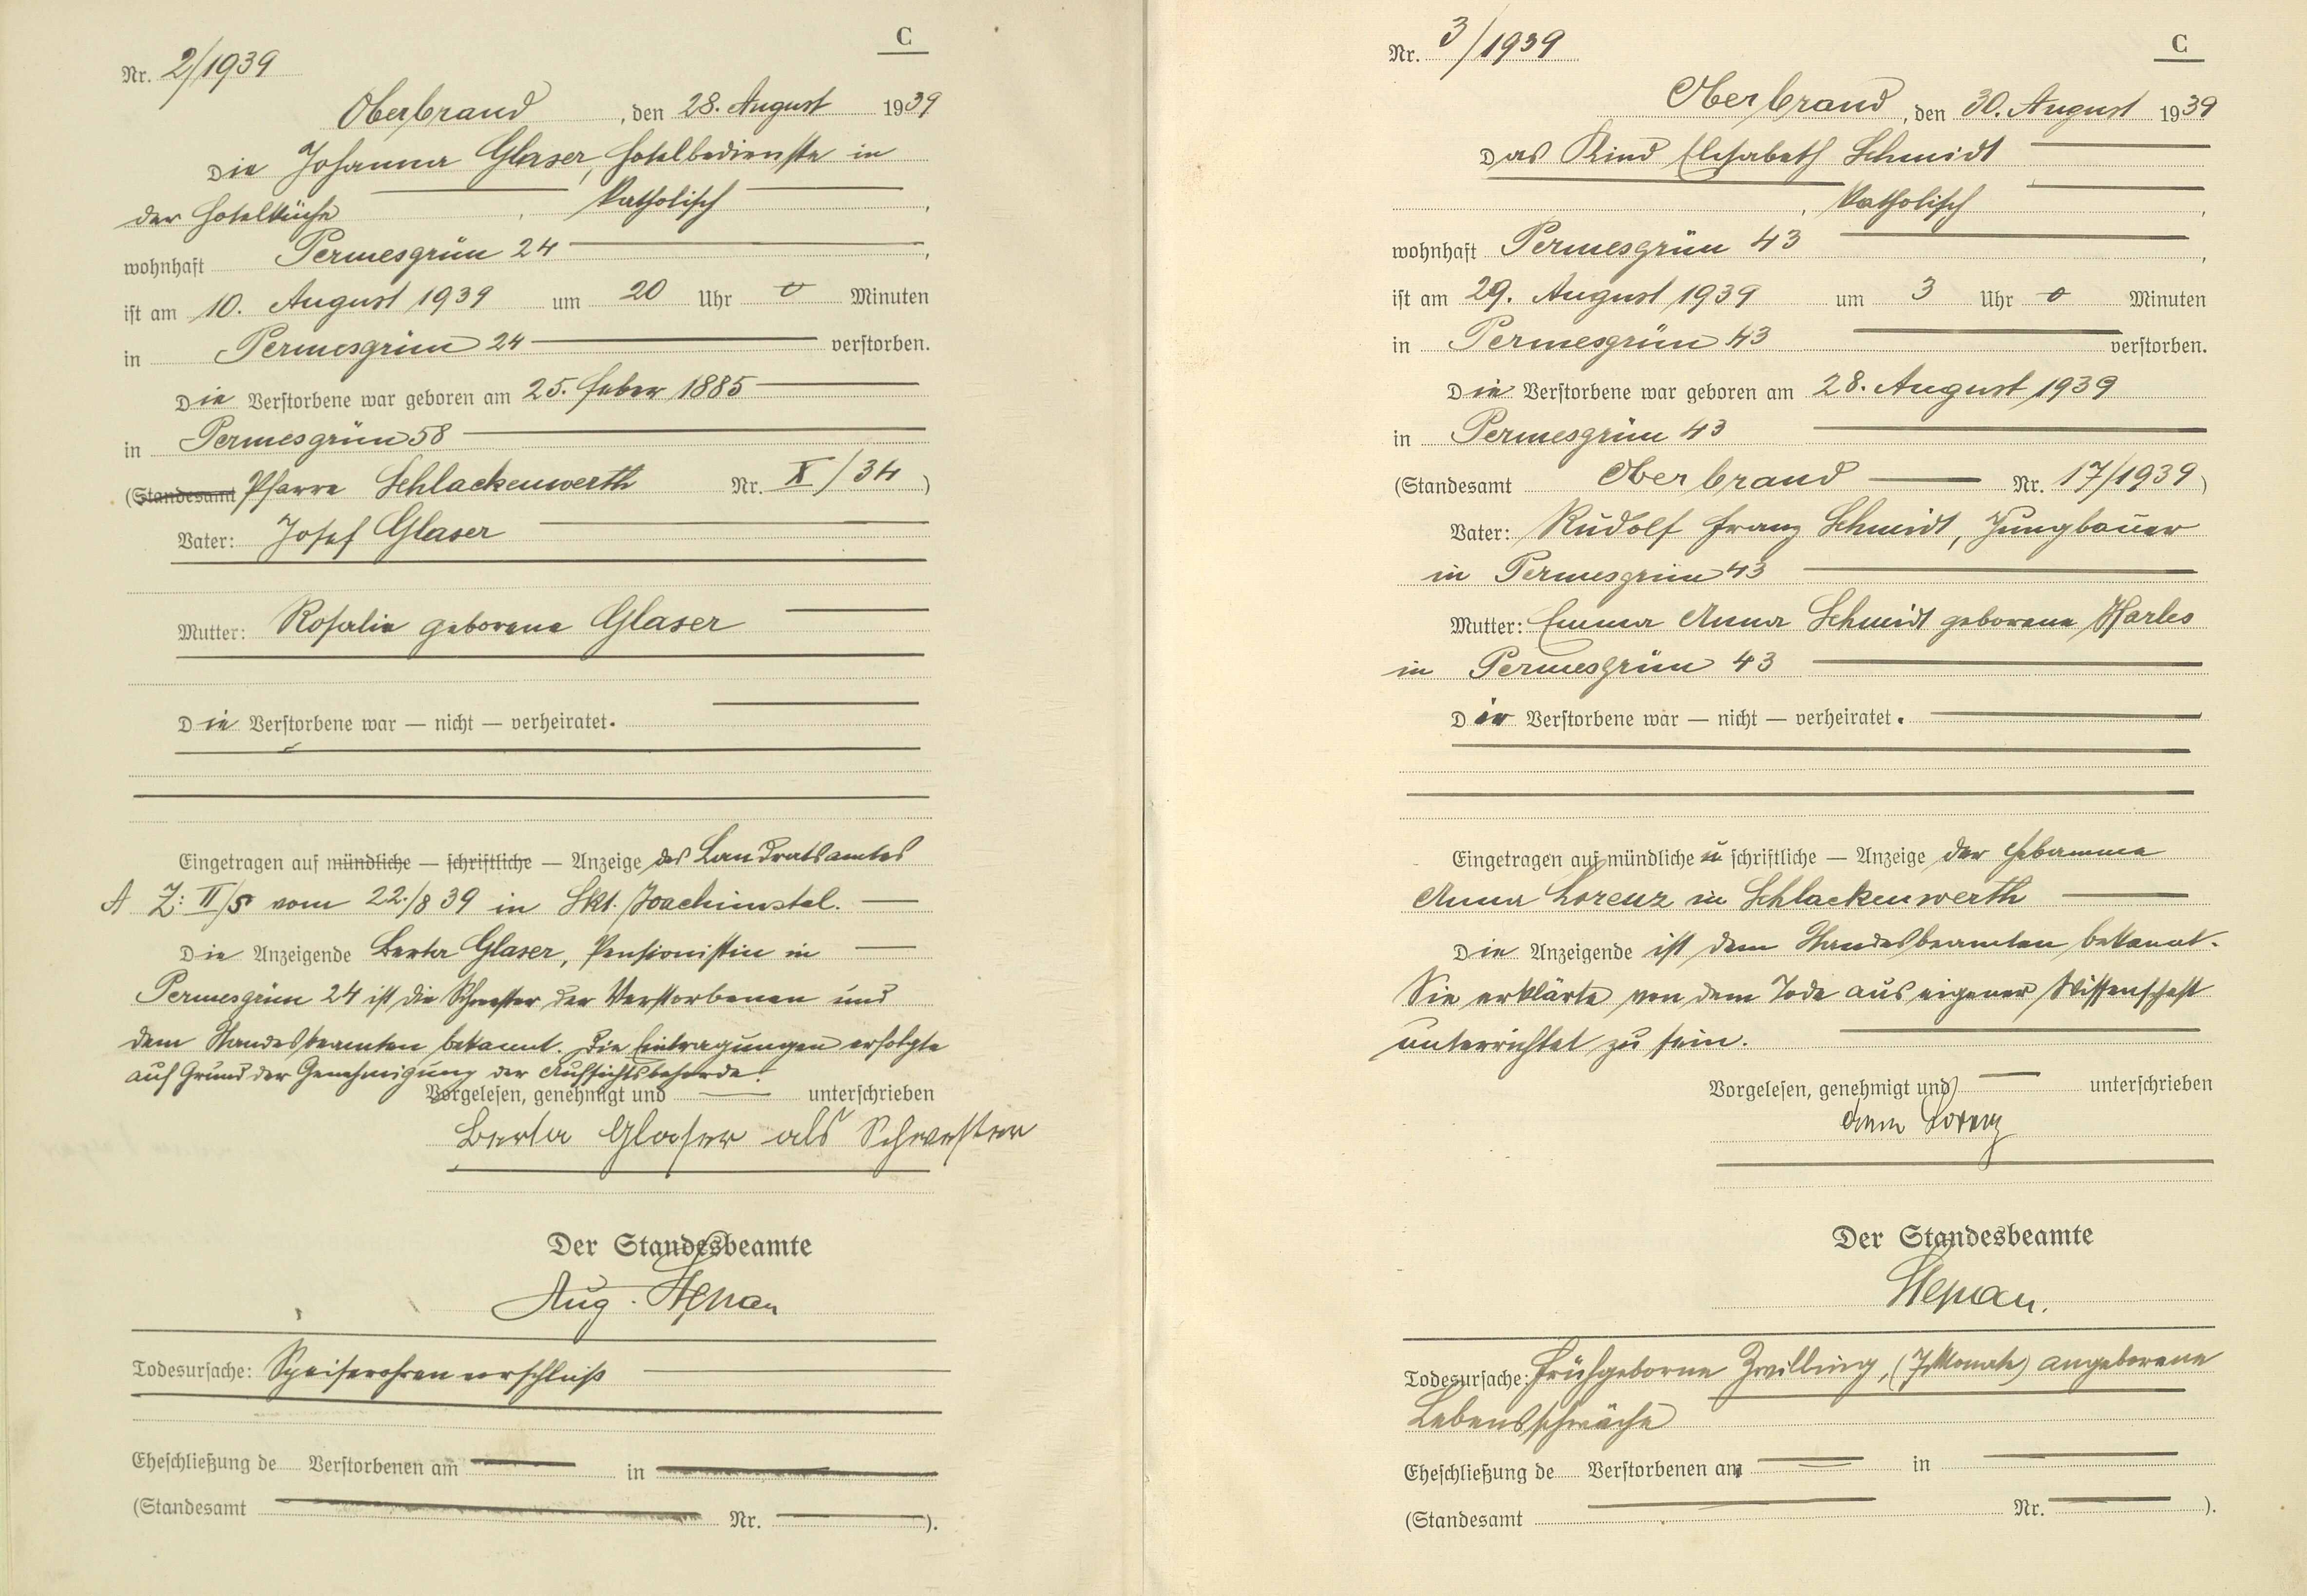 C
Nr. 2/1939
Oberbrand, den 28. August 1939
Die Johanna Glaser, Hotelbedienste in
der Hotelküche, katholisch,
wohnhaft Permesgrün 24,
ist am 10. August 1939 um 20 Uhr 0 Minuten
in Permesgrün 24 verstorben.
Die Verstorbene war geboren am 25. Feber 1885
in Permesgrün 58
(Standesamt Pfarre Schlackenwerth Nr. X/34)
Vater: Josef Glaser
Mutter: Rosalia geborene Glaser
Die Verstorbene war — nicht — verheiratet.
Eingetragen auf mündliche — schriftliche — Anzeige des Landratsamtes
A Z: II/5 vom 22./8 39 in Skt. Joachimstal.
Die Anzeigende Berta Glaser, Pensionistin in
Permesgrün 24 ist die Schwester der Verstorbenen und
dem Standesbeamten bekannt. Die Eintragungen erfolgte
auf Grund der Genehmigung der Aufsichtsbehörde.
Vorgelesen, genehmigt und unterschrieben
Berta Glaser als Schwester
Der Standesbeamte
Aug.
Todesursache: Speiseröhrenverschluß
Eheschließung de Verstorbenen am in
(Standesamt Nr. ).
C
Nr. 3/1939
Oberbrand, den 30. August 1939
Das Kind Elisabeth Schmidt
, katholisch,
wohnhaft Permesgrün 43,
ist am 29. August 1939 um 3 Uhr 0 Minuten
in Permesgrün 43 verstorben.
Die Verstorbene war geboren am 28. August 1939
in Permesgrün 43
(Standesamt Oberbrand Nr. 17/1939)
Vater: Rudolf Franz Schmidt, Jungbauer
in Permesgrün 43
Mutter: Emma Anna Schmidt geborene Harles
in Permesgrün 43
Die Verstorbene war — nicht — verheiratet.
Eingetragen auf mündliche u schriftliche — Anzeige der Hebamme
Anna Lorenz in Schlackenwerth
Die Anzeigende ist dem Standesbeamten bekannt.
Sie erklärte von dem Tode aus eigener Wissenschaft
unterrichtet zu sein.
Vorgelesen, genehmigt und unterschrieben
Anna Lorenz
Der Standesbeamte
Todesursache: Frühgeborne Zwilling, (7 Monate) angeborene
Lebensschwäche
Eheschließung de Verstorbenen am in
(Standesamt Nr. ).